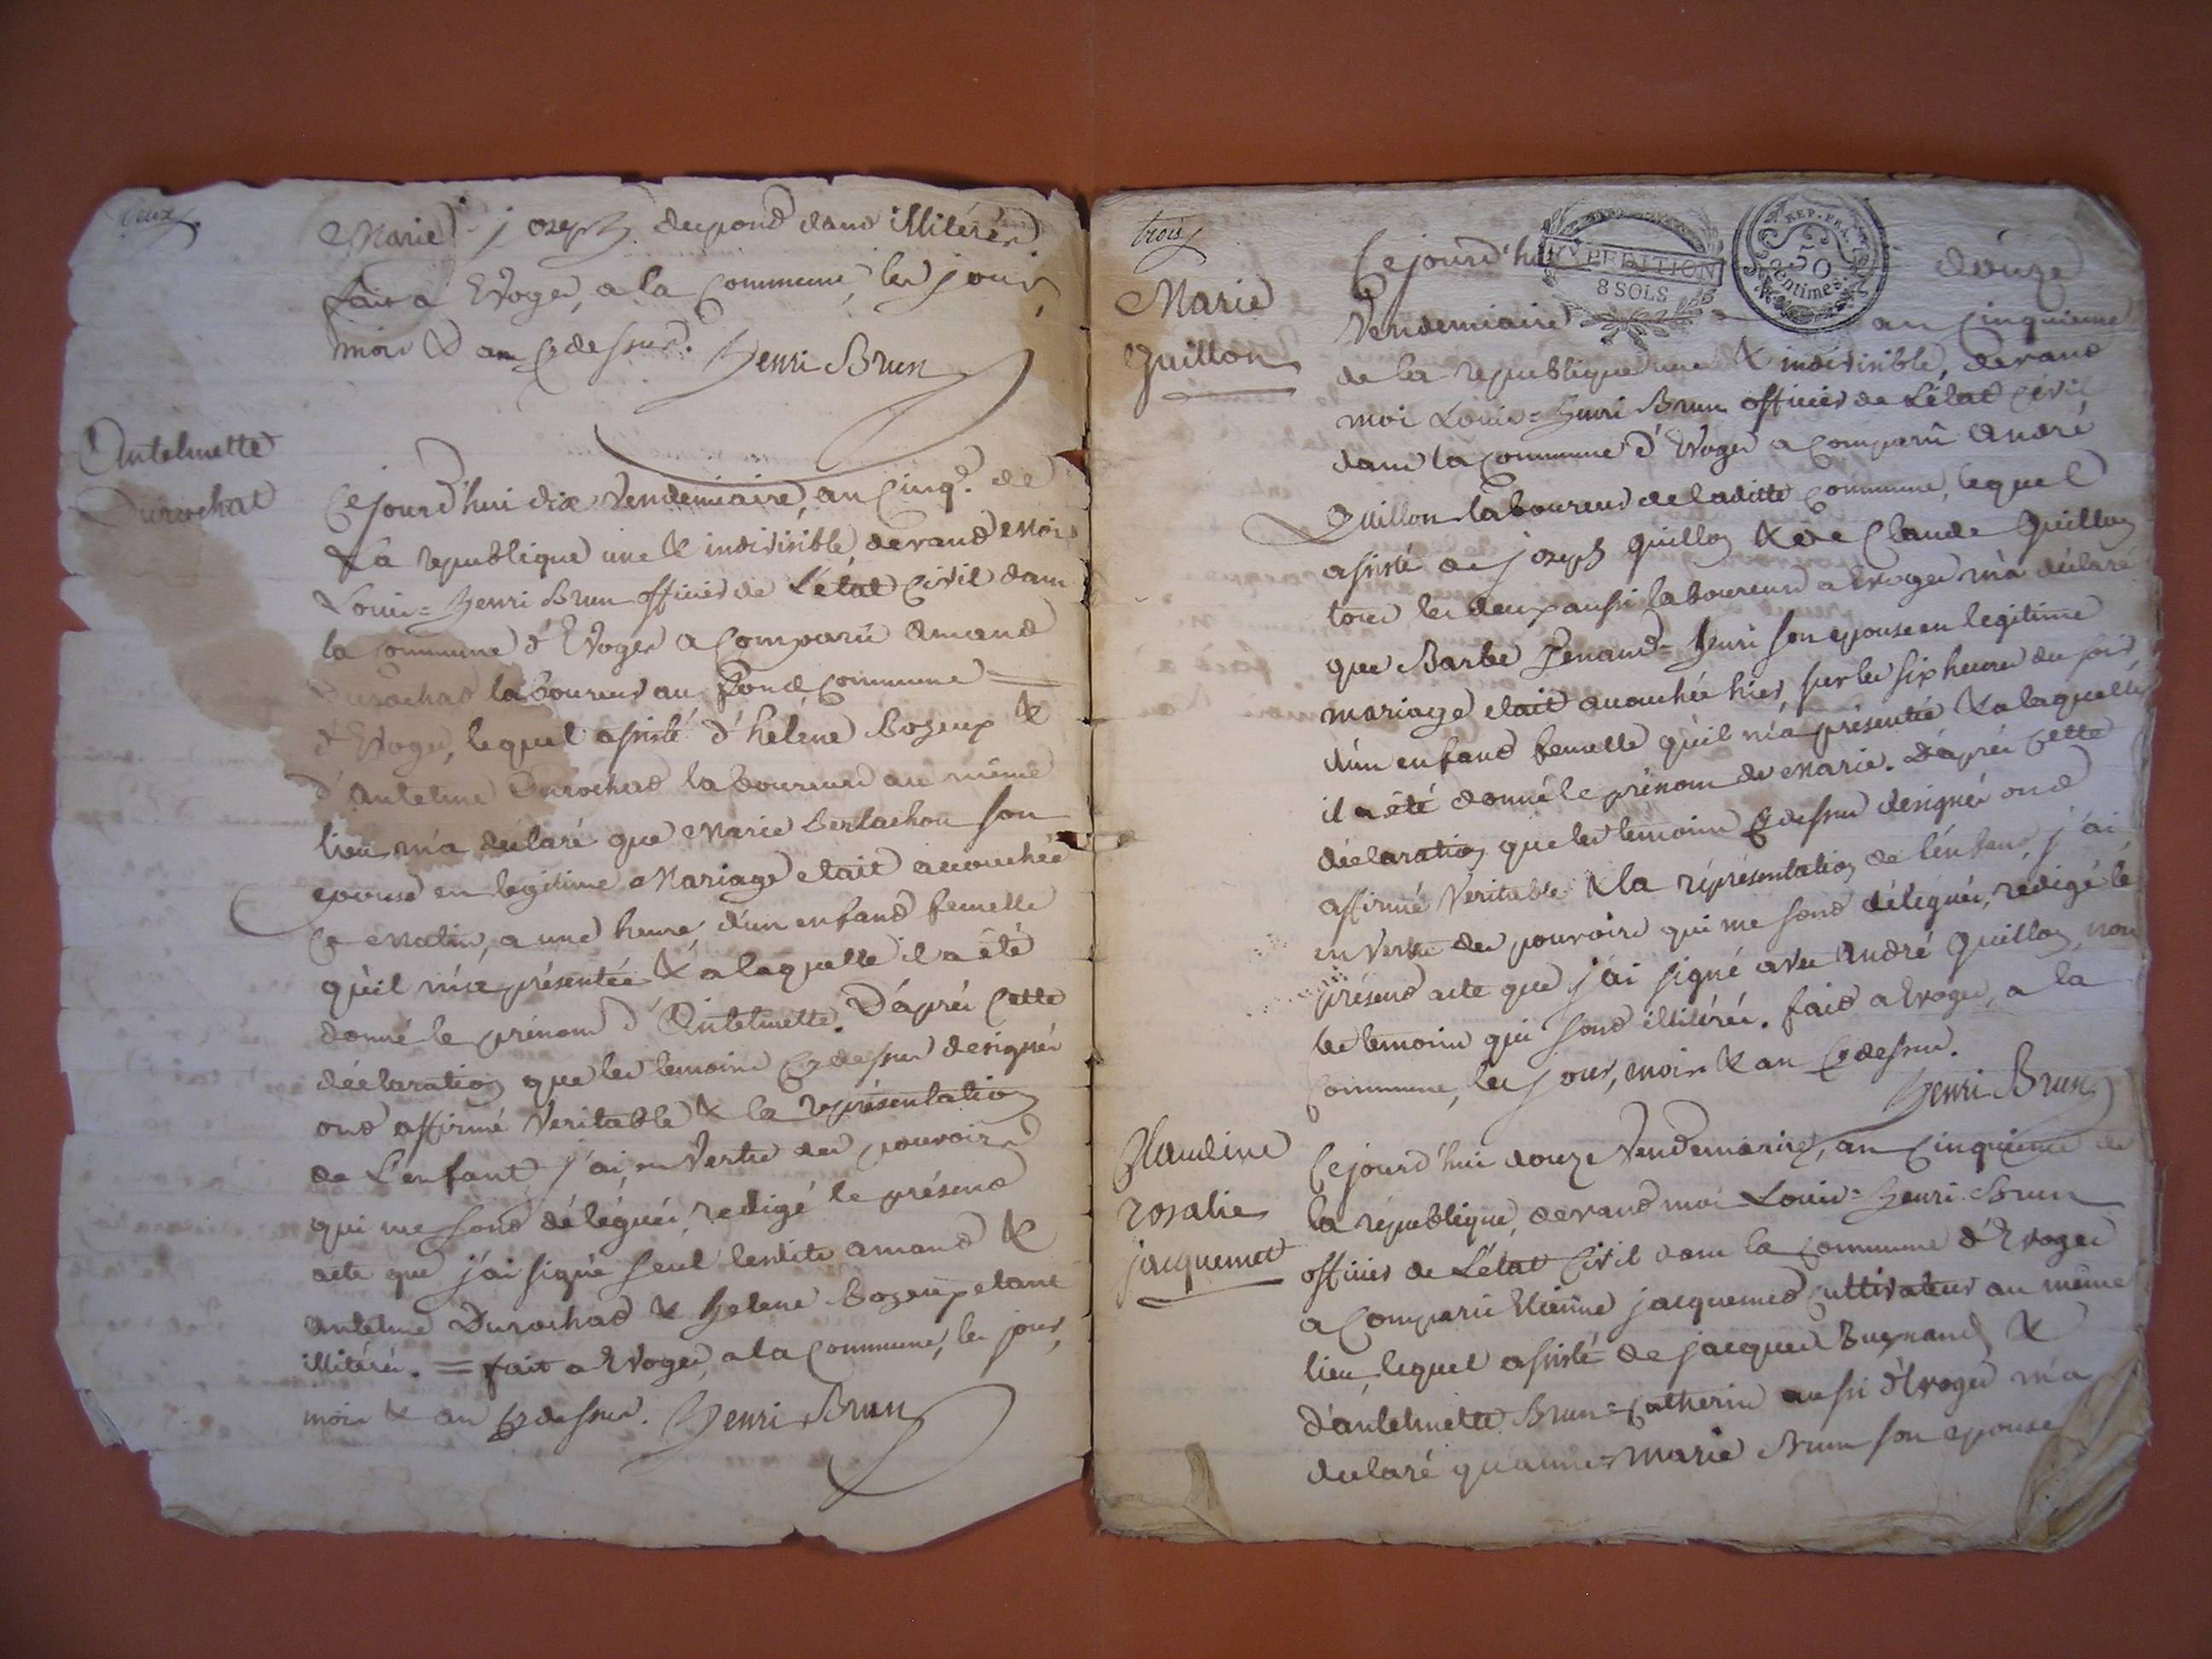 deux
Marie joseph dupond étant illitérés
fait a Evoges, a la Commune, les jour,
mois & an Cy dessus. Henri Brun
Antelmette
Durochat
Cejourd'hui dix Vendemiaire, an Cinq.e de
La republique une & indivisible, devand moi
Louis=Henri Brun officier de L'état Civil dans
la Commune d'Evoges a Comparû amand
Durochad laboureur au Commune =
d'Evoges, lequel assisté d'hélène Bozeup &
d'antelme Durochad laboureurs au même
lieu m'a déclaré que Marie Berlachon son
epouse en legitime Mariage etait accouchée
Ce matin, a une heure, d'un enfand femelle
qu'il m'a présentée & a laquelle il a été
donné le prénom d'Antelmette. D'après Cette
déclaration que les temoins Cy dessus designés
ond affirmé Veritable & la représentation
de L'enfant j'ai, en Vertu des pouvoirs
qui me sond délégués, redigé le présend
acte que j'ai signé seul lesdits amand &
antelme Durochad & helene Bozeup etant
illitérés. = fait a Evoges, a la Commune, les jour,
mois & an Cy dessus. Henri Brun
trois
EXPEDITION
8 SOLS
REP. FRA.
50
Centimes
Marie
Guillon
Cejourd'hui douze
Vendemiaire an Cinquieme
de la republique une & indivisible, devand
moi Louis=Henri Brun officier de L'état Civil
dans la Commune d'Evoges a Comparû André
Guillon laboureur de laditte Commune, lequel
assisté de joseph Guillon & de Claude Guillon
tous les deux aussi laboureurs a Evoges m'a déclaré
que Barbe Henri son epouse en legitime
mariage etait accouchée hier, sur les six heures du soir
d'un enfand femelle qu'il m'a présentée & a laquelle
il a été donné le prénom de Marie. D'après Cette
déclaration que les temoins Cy dessus designés ond
affirmé Veritable & la représentation de l'enfand, j'ai
en Vertu des pouvoirs qui me sond délégués, redigé le
présend acte que j'ai signé avec André Guillon, non
les temoins qui sond illitérés. fait a Evoges, a la
Commune, les jour, mois & an Cy dessus.
Henri Brun
Claudine
rosalie
jacquemet
Cejourd'hui douze Vendemiaire, an Cinquieme de
la république, devand moi Louis=Henri Brun
officier de L'état Civil dans la Commune d'Evoges
a Comparu Etienne jacquemed Cultivateur au même
lieu, lequel assisté de jacques Bugnand &
d'antelmette Brun=Catherin aussi d'Evoges m'a
declaré qu'anne=Marie Brun son epouse